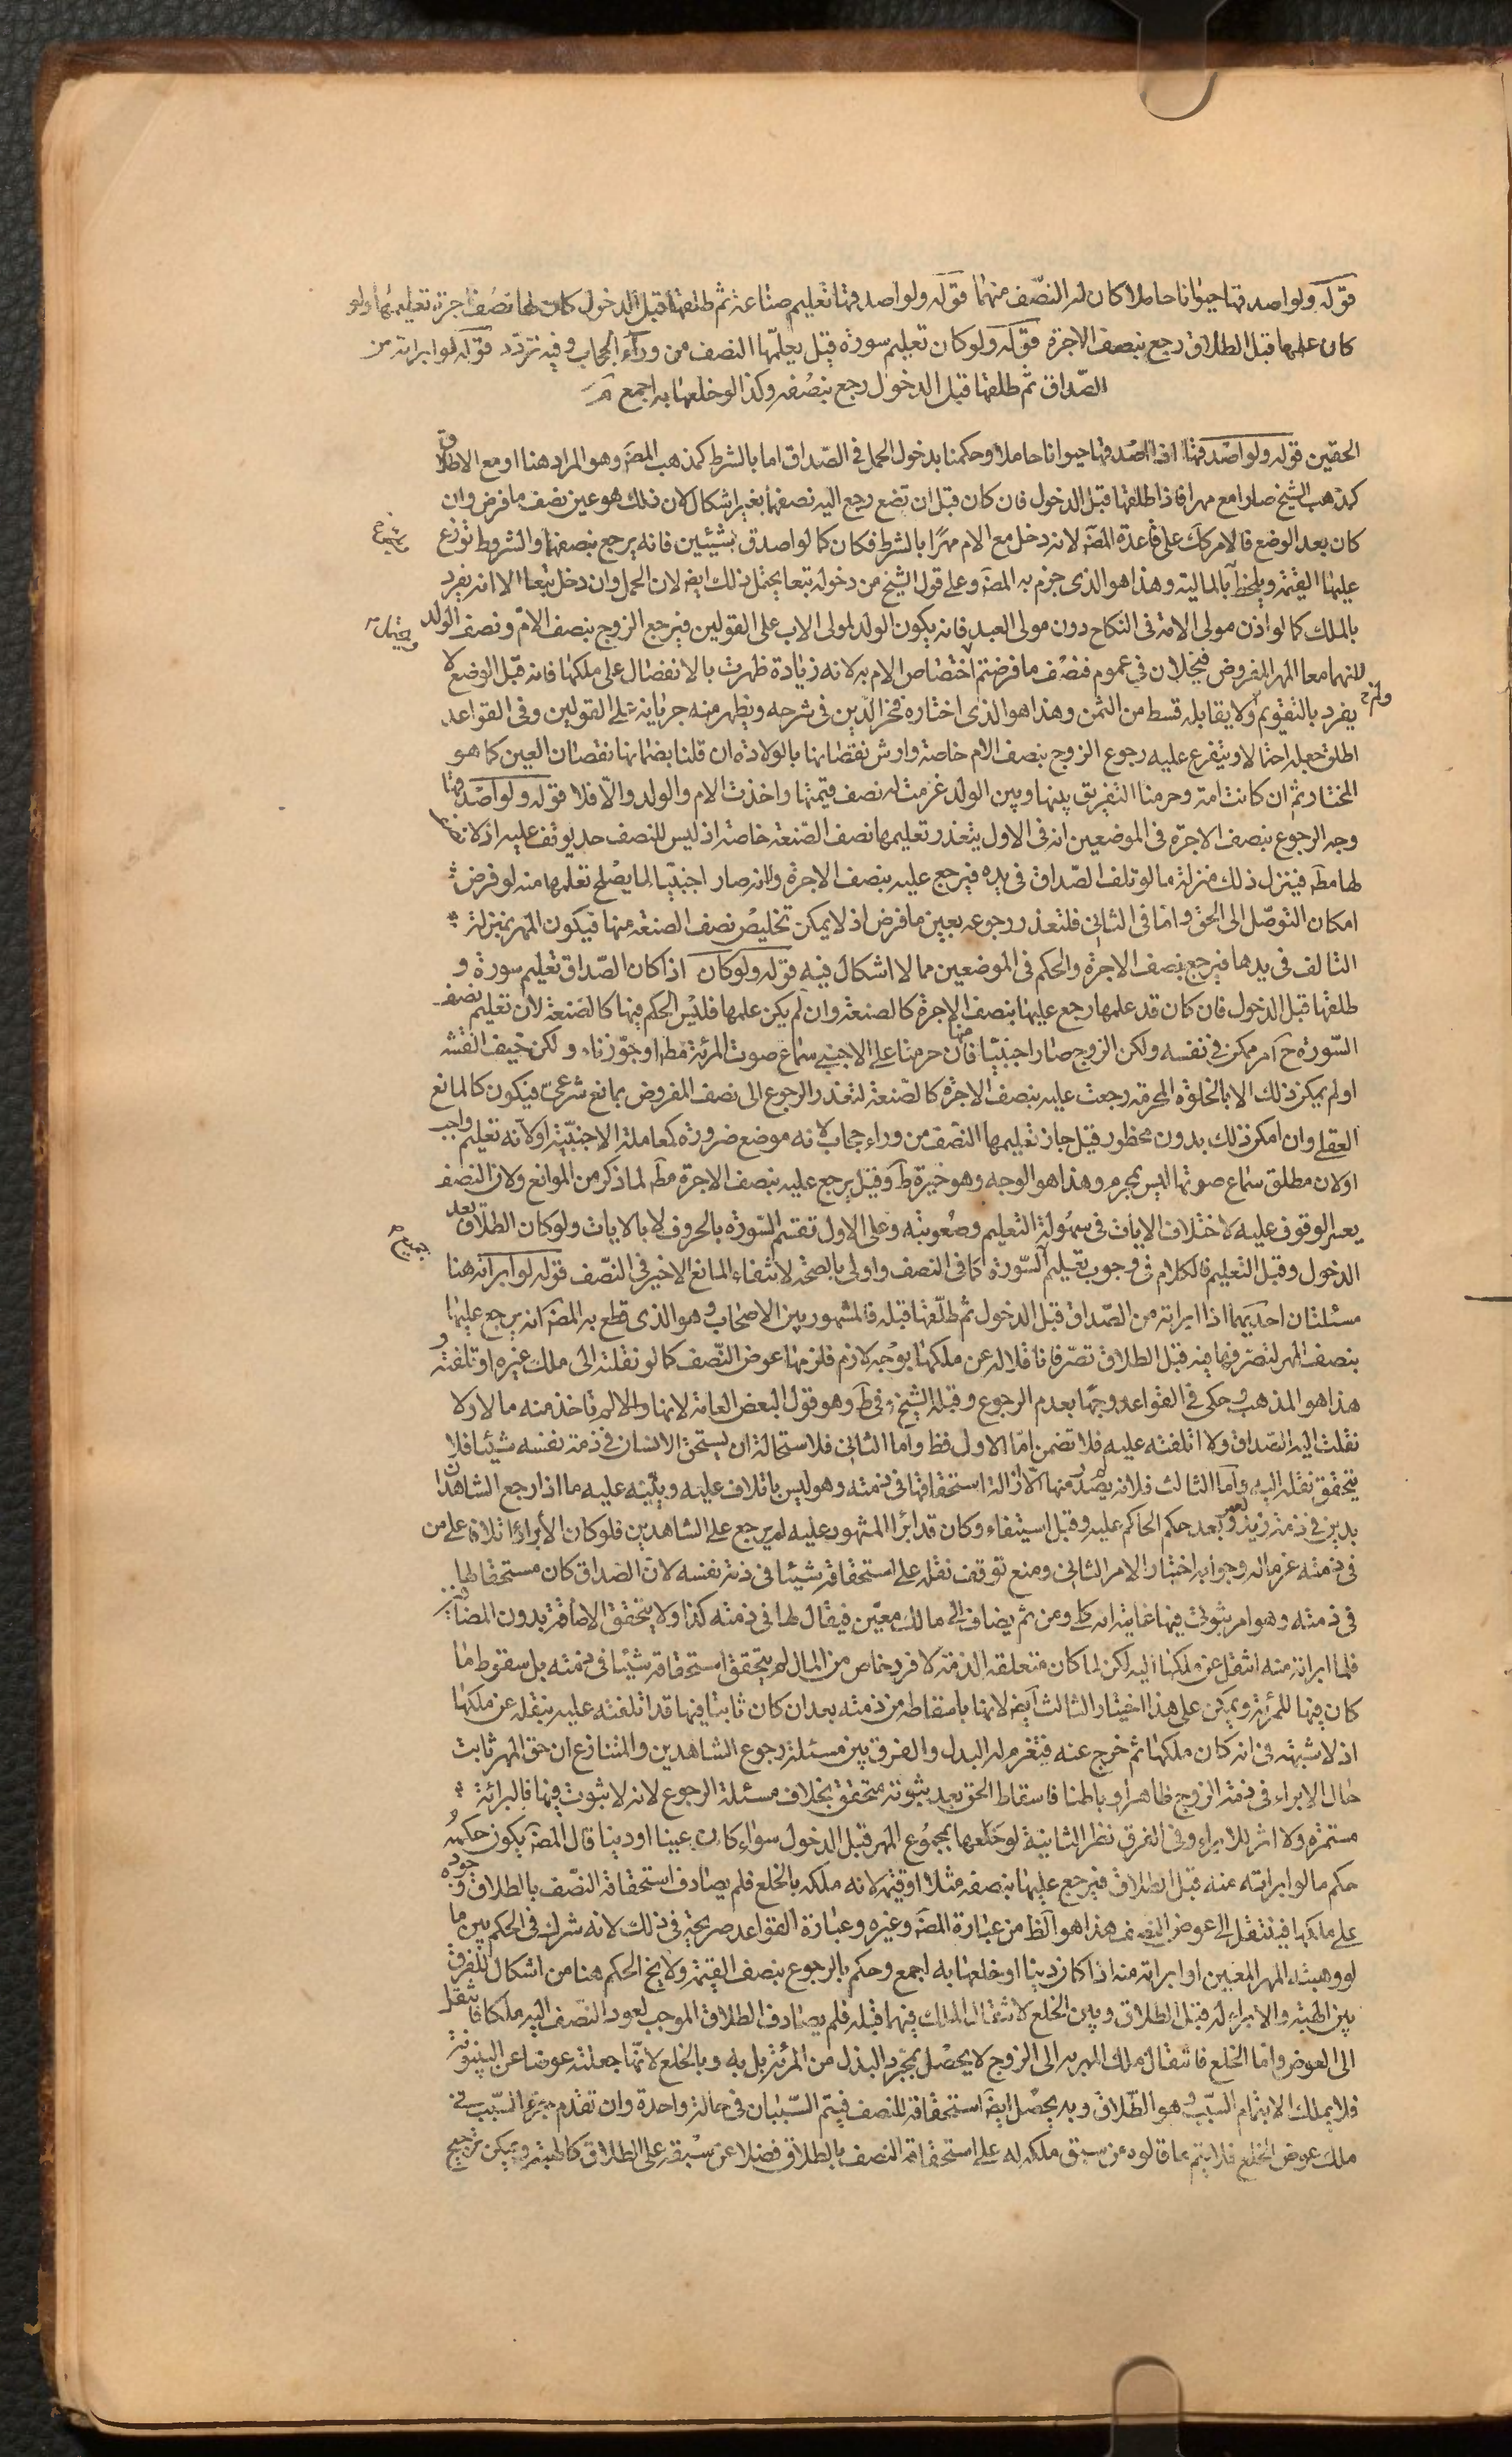 قوله ولو اصدقها حيوانا حاملا كان له النصف منهما قوله ولو اصدقها تعليم صناعة ثم طلقها قبل الدخول كان لها نصف اجرة تعليمها ولو
كان علمها قبل الطلاق رجع بنصف الاجرة قوله ولو كان تعليم سورة قيل يعلمها النصف من وراء الحجاب وفيه تردد قوله لو ابراته من
الصداق ثم طلقها قبل الدخول رجع بنصفه وكذا لو خلعها به اجمع
الحقين قوله ولو اصدقها اذا اصدقها حيوانا حاملا وحكمنا بدخول الحمل في الصداق اما بالشرط كمذهب المصَ وهو المراد هنا او مع الاطلاق
كمذهب الشيخ صارا مع مهرا فاذا طلقها قبل الدخول فان كان قبل ان تضع رجع اليه نصفهما بغير اشكال لان ذلك هو عين نصف ما فرض وان
كان بعد الوضع فالامر كك على قاعدة المصَ لانه دخل مع الام مهرا بالشرط فكان كما لو اصدق شيئين فانه يرجع بنصفهما والشروط توزع
عليها القيمة ويلحظ بالمالية وهذا هو الذي جزم به المصَ وعلى قول الشيخ من دخوله تبعا يحتمل ذلك ايضا لان الحمل وان دخل تبعا الا انه يفرد
بالملك كما لو اذن مولى الامة في النكاح دون مولى العبد فانه يكون الولد لمولى الاب على القولين فيرجع الزوج بنصف الام ونصف الولد
لانهما معا المهر المفروض فيدخلان في عموم فنصف ما فرضتم اختصاص الام به لانه زيادة ظهرت بالانفصال على ملكها فانه قبل الوضع لا
يفرد بالتقويم ولا يقابله قسط من الثمن وهذا هو الذي اختاره فخر الدين في شرحه ويظهر منه جريانه على القولين وفي القواعد
اطلق جعله احتمالا ويتفرع عليه رجوع الزوج بنصف الام خاصة وارش نقصانها بالولادة ان قلنا بضمانها نقصان العين كما هو
المختار ثم ان كانت امة وحرمنا التفريق بينها وبين الولد غرمت له نصف قيمتها واخذت الام والولد والا فلا قوله ولو اصدقها
وجه الرجوع بنصف الاجرة في الموضعين انه في الاول يتعذر تعليمها نصف الصنعة خاصة اذ ليس للنصف حد يوقف عليه اذ لا نصف
لها مط فينزل ذلك منزلة ما لو تلف الصداق في يده فيرجع عليه بنصف الاجرة ولانه صار اجنبيا لا يصلح تعلمها منه لو فرض
امكان التوصل الى الحق واما في الثاني فلتعذر رجوعه بعين ما فرض اذ لا يمكن تخليص نصف الصنعة منها فيكون المهر بمنزلة
التالف في يدها فيرجع بنصف الاجرة والحكم في الموضعين مما لا اشكال فيه قوله ولو كان اذا كان الصداق تعليم سورة و
طلقها قبل الدخول فان كان قد علمها رجع عليها بنصف الاجرة كالصنعة وان لم يكن علمها فليس الحكم فيها كالصنعة لان تعليم نصف
السورة ح امر ممكن في نفسه ولكن الزوج صار اجنبيا منها فان حرمنا على الاجنبي سماع صوت المرئة مط او جوزناه ولكن خيف الفتنة
او لم يمكن ذلك الا بالخلوة المحرمة رجعت عليه بنصف الاجرة كالصنعة لتعذر الرجوع الى نصف المفروض بمانع شرعي فيكون كالمانع
العقلي وان امكن ذلك بدون محظور قيل جاز تعليمها النصف من وراء حجاب لانه موضع ضرورة كمعاملة الاجنبية او لانه تعليم واجب
او لان مطلق سماع صوتها ليس بمحرم وهذا هو الوجه وهو خيرة ط وقيل يرجع عليه بنصف الاجرة مط لما ذكر من الموانع ولان النصف
يعسر الوقوف عليه لاختلاف الايات في سهولة التعليم وصعوبته وعلى الاول تقسم السورة بالحروف لا بالايات ولو كان الطلاق بعد
الدخول وقبل التعليم فالكلام في وجوب تعليم السورة كما في النصف واولى بالصحة لانتفاء المانع الاخير في النصف قوله لو ابراته هنا
مسئلتان احديهما اذا ابراته من الصداق قبل الدخول ثم طلقها قبله فالمشهور بين الاصحاب وهو الذي قطع به المصَ انه يرجع عليها
بنصف المهر لتصرفها فيه قبل الطلاق تصرفا ناقلا له عن ملكها بوجه لازم فلزمها عوض النصف كما لو نقلته الى ملك غيره او تلفته و
هذا هو المذهب وحكى في القواعد وجها بعدم الرجوع وقبله الشيخ في ط وهو قول لبعض العامة لانها والا لم تاخذ منه مالا ولا
نقلت اليه الصداق ولا اتلفته عليه فلا تضمن اما الاول فظ واما الثاني فلاستحالة ان يستحق الانسان في ذمة نفسه شيئا فلا
يتحقق نقله اليه واما الثالث فلانه لم يصدر منها الا ازالة استحقاقها في ذمته وهو ليس باتلاف عليه وينبه عليه ما اذا رجع الشاهدان
بدين في ذمة زيد لعمرو بعد حكم الحاكم عليه وقبل استيفاء وكان قد ابرا المشهود عليه لم يرجع على الشاهدين فلو كان الابراء اتلافا على من
في ذمته غرما له وجوابه اختيار الامر الثاني ومنع توقف نقله على استحقاقه شيئا في ذمة نفسه لان الصداق كان مستحقا لها
في ذمته وهو امر ثبوتي فيها غايته انه كلي ومن ثم يضاف الى مالك معين فيقال لها في ذمته كذا ولا يتحقق الاضافة بدون المضاف
فلما ابراته منه انتقل عن ملكها اليه لكن لما كان متعلقه الذمة لا فرد خاص من المال لم يتحقق استحقاقه شيئا في ذمته بل سقوط ما
كان فيها للمرئة ويمكن على هذا اختيار الثالث ايضا لانها باسقاطه من ذمته بعد ان كان ثابتا فيها قد اتلفته عليه بنقله عن ملكها
اذ لا شبهة في انه كان ملكها ثم خرج عنه فتغرم له البدل والفرق بين مسئلة رجوع الشاهدين والمتنازع ان حق المهر ثابت
حال الابراء في ذمة الزوج ظاهرا وباطنا فاسقاط الحق بعد ثبوته متحقق بخلاف مسئلة الرجوع لانه لا ثبوت فيها فالبرائة
مستمرة ولا اثر للابراء وفي الفرق نظر الثانية لو خلعها بمجموع المهر قبل الدخول سواء كان عينا او دينا قال المصَ يكون حكمه
حكم ما لو ابراته عنه قبل الطلاق فيرجع عليها بنصفه مثلا او قيمة لانه ملكه بالخلع فلم يصادف استحقاقه النصف بالطلاق وجوده
على ملكها فينتقل الى عوض النصف هذا هو الظ من عبارة المصَ وغيره وعبارة القواعد صريحة في ذلك لانه شرك في الحكم بين ما
لو وهبته المهر المعين او ابراته منه اذا كان دينا او خلعها به اجمع وحكم بالرجوع بنصف القيمة ولا يخ الحكم هنا من اشكال للفرق
بين الهبة والابراء له قبل الطلاق وبين الخلع لانتقال الملك فيهما قبله فلم يصادف الطلاق الموجب لعود النصف اليه ملكا فانتقل
الى العوض واما الخلع فانتقال ملك المهر به الى الزوج لا يحصل بمجرد البذل من المرئة بل به وبالخلع لانها جعلته عوضا عن البينونة
فلا يملك الا بتمام السبب وهو الطلاق وبه يحصل ايضا استحقاقه للنصف فيتم السببان في حالة واحدة وان تقدم جزء السبب في
ملك عوض الخلع فلا يتم ما قالوه من سبق ملكه له على استحقاقه النصف بالطلاق فضلا عن سبقه على الطلاق كالهبة ويمكن ترجيح